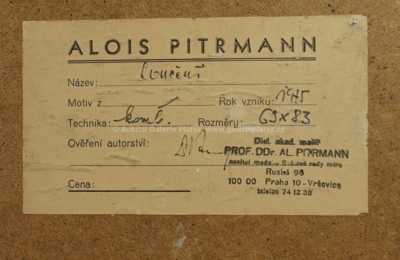 ALOIS PITRMANN
Název: Loučení
Motiv z Rok vzniku:
Technika: komb. Rozměry: 63x83
Ověření autorství:
Dipl. akad. malíř
PROF. DDr. AL. PITRMANN
nositel
Ruská 96
100 00 Praha 10-Vršovice
telefon 74 12 38
Cena: